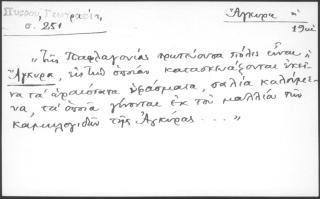 Πύρρου, Γεωγραφία,
σ. 251
Ἄγκυρα ἡ
19ου
„Τῆς Παφλαγονίας πρωτεύουσα πόλις εἶναι ἡ
Ἄγκυρα, εἰς τὴν ὁποίαν κατασκευάζονται ἐκεῖ-
να τὰ ὡραιότατα ὑφάσματα, σαλία καλούμε-
να, τὰ ὁποῖα γίνονται ἐκ τοῦ μαλλία τῶν
καμηλογιδῶν τῆς Ἀγκύρας . . . "